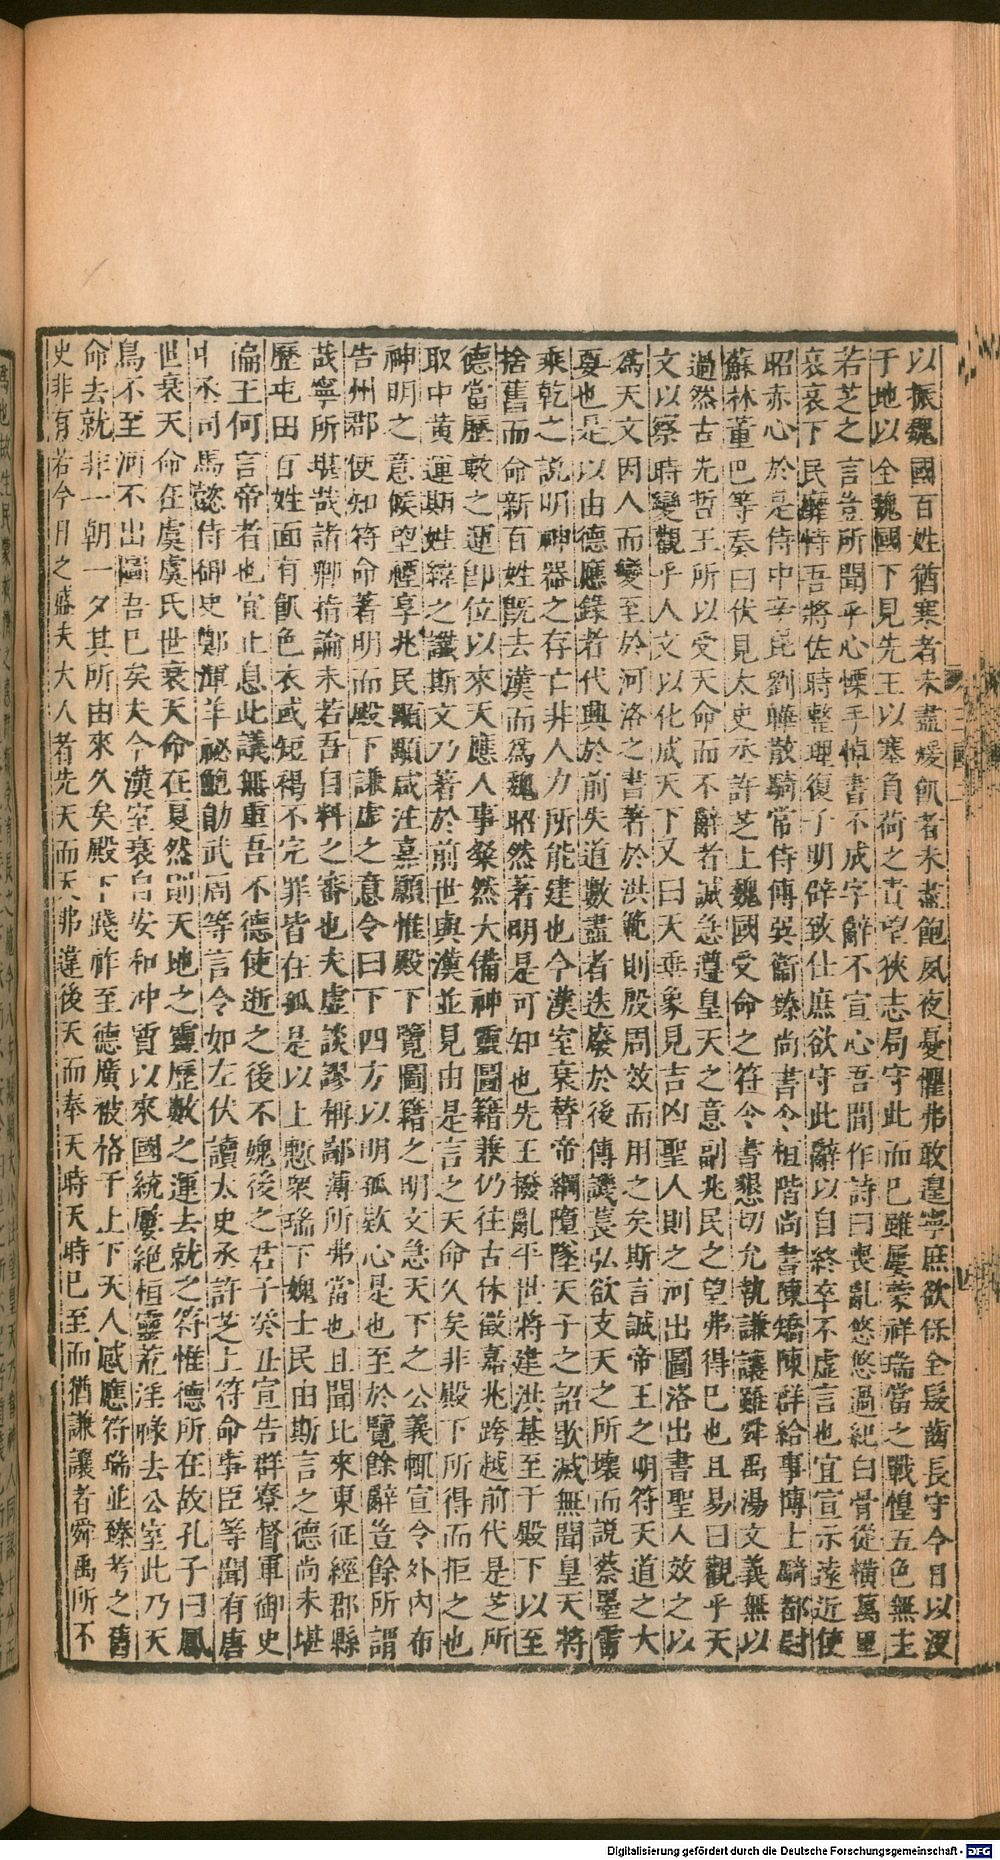 以振魏國百姓猶寒者未盡煖飢者未盡飽夙夜憂懼弗敢遑寧庶欲保全髮齒長守今日以沒
于地以全魏國下見先王以塞負荷之責望狹志局守此而已雖屢蒙祥瑞當之戰惶五色無主
若芝之言豈所聞乎心慄手悼書不成字辭不宣心吾間作詩曰喪亂悠悠過紀白骨從橫萬里
哀哀下民靡恃吾將佐時整理復子明辟致仕庶欲守此辭以自終卒不虛言也宜宣示遠近使
昭赤心於是侍中辛毗劉曄散騎常侍傅巽衞臻尚書令桓階尚書陳矯陳群給事博士騎都尉
蘇林董巴等奏曰伏見太史丞許芝上魏國受命之符令書懇切允執謙讓雖舜禹湯文義無以
過然古先哲王所以受天命而不辭者誠急遵皇天之意副兆民之望弗得已也且易曰觀乎天
文以察時變觀乎人文以化成天下又曰天垂象見吉凶聖人則之河出圖洛出書聖人效之以
爲天文因人而變至於河洛之書著於洪範則殷周效而用之矣斯言誠帝王之明符天道之大
要也是以由德應錄者代興於前失道數盡者迭廢於後傳譏萇弘欲支天之所壞而說蔡墨雷
乘乾之說明神器之存亡非人力所能建也今漢室衰替帝綱隳墜天子之詔歇滅無聞皇天將
捨舊而命新百姓旣去漢而爲魏昭然著明是可知也先王撥亂平世將建洪基至于殿下以至
德當歷數之運卽位以來天應人事粲然大備神靈圖籍兼仍往古休徵嘉兆跨越前代是芝所
取中黄運期姓緯之讖斯文乃著於前世與漢並見由是言之天命久矣非殿下所得而拒之也
神明之意候望禋享兆民顒顒咸注嘉願惟殿下覽圖籍之明文急天下之公義輒宣令外內布
告州郡使知符命著明而殿下謙虛之意令曰下四方以明孤款心是也至於覽餘辭豈餘所謂
哉寧所堪哉諸卿指論未若吾自料之審也夫虛談謬稱鄙薄所弗當也且聞比來東征經郡縣
歷屯田百姓面有飢色衣或短褐不完罪皆在孤是以上慙衆瑞下媿士民由斯言之德尚未堪
偏王何言帝者也宜止息此議無重吾不德使逝之後不媿後之君子癸丑宣告群寮督軍御史
中丞司馬懿侍御史鄭渾羊祕鮑勛武周等言令如左伏讀太史丞許芝上符命事臣等聞有唐
世衰天命在虞虞氏世衰天命在夏然則天地之靈歷數之運去就之符惟德所在故孔子曰鳳
鳥不至河不出圖吾已矣夫今漢室衰自安和冲質以來國統屢絕桓靈荒淫祿去公室此乃天
命去就非一朝一夕其所由來久矣殿下踐祚至德廣被格于上下天人感應符瑞並臻考之舊
史非有若今日之盛夫大人者先天而天弗違後天而奉天時天時已至而猶謙讓者舜禹所不
Digitalisierung gefördert durch die Deutsche Forschungsgemeinschaft - DFG